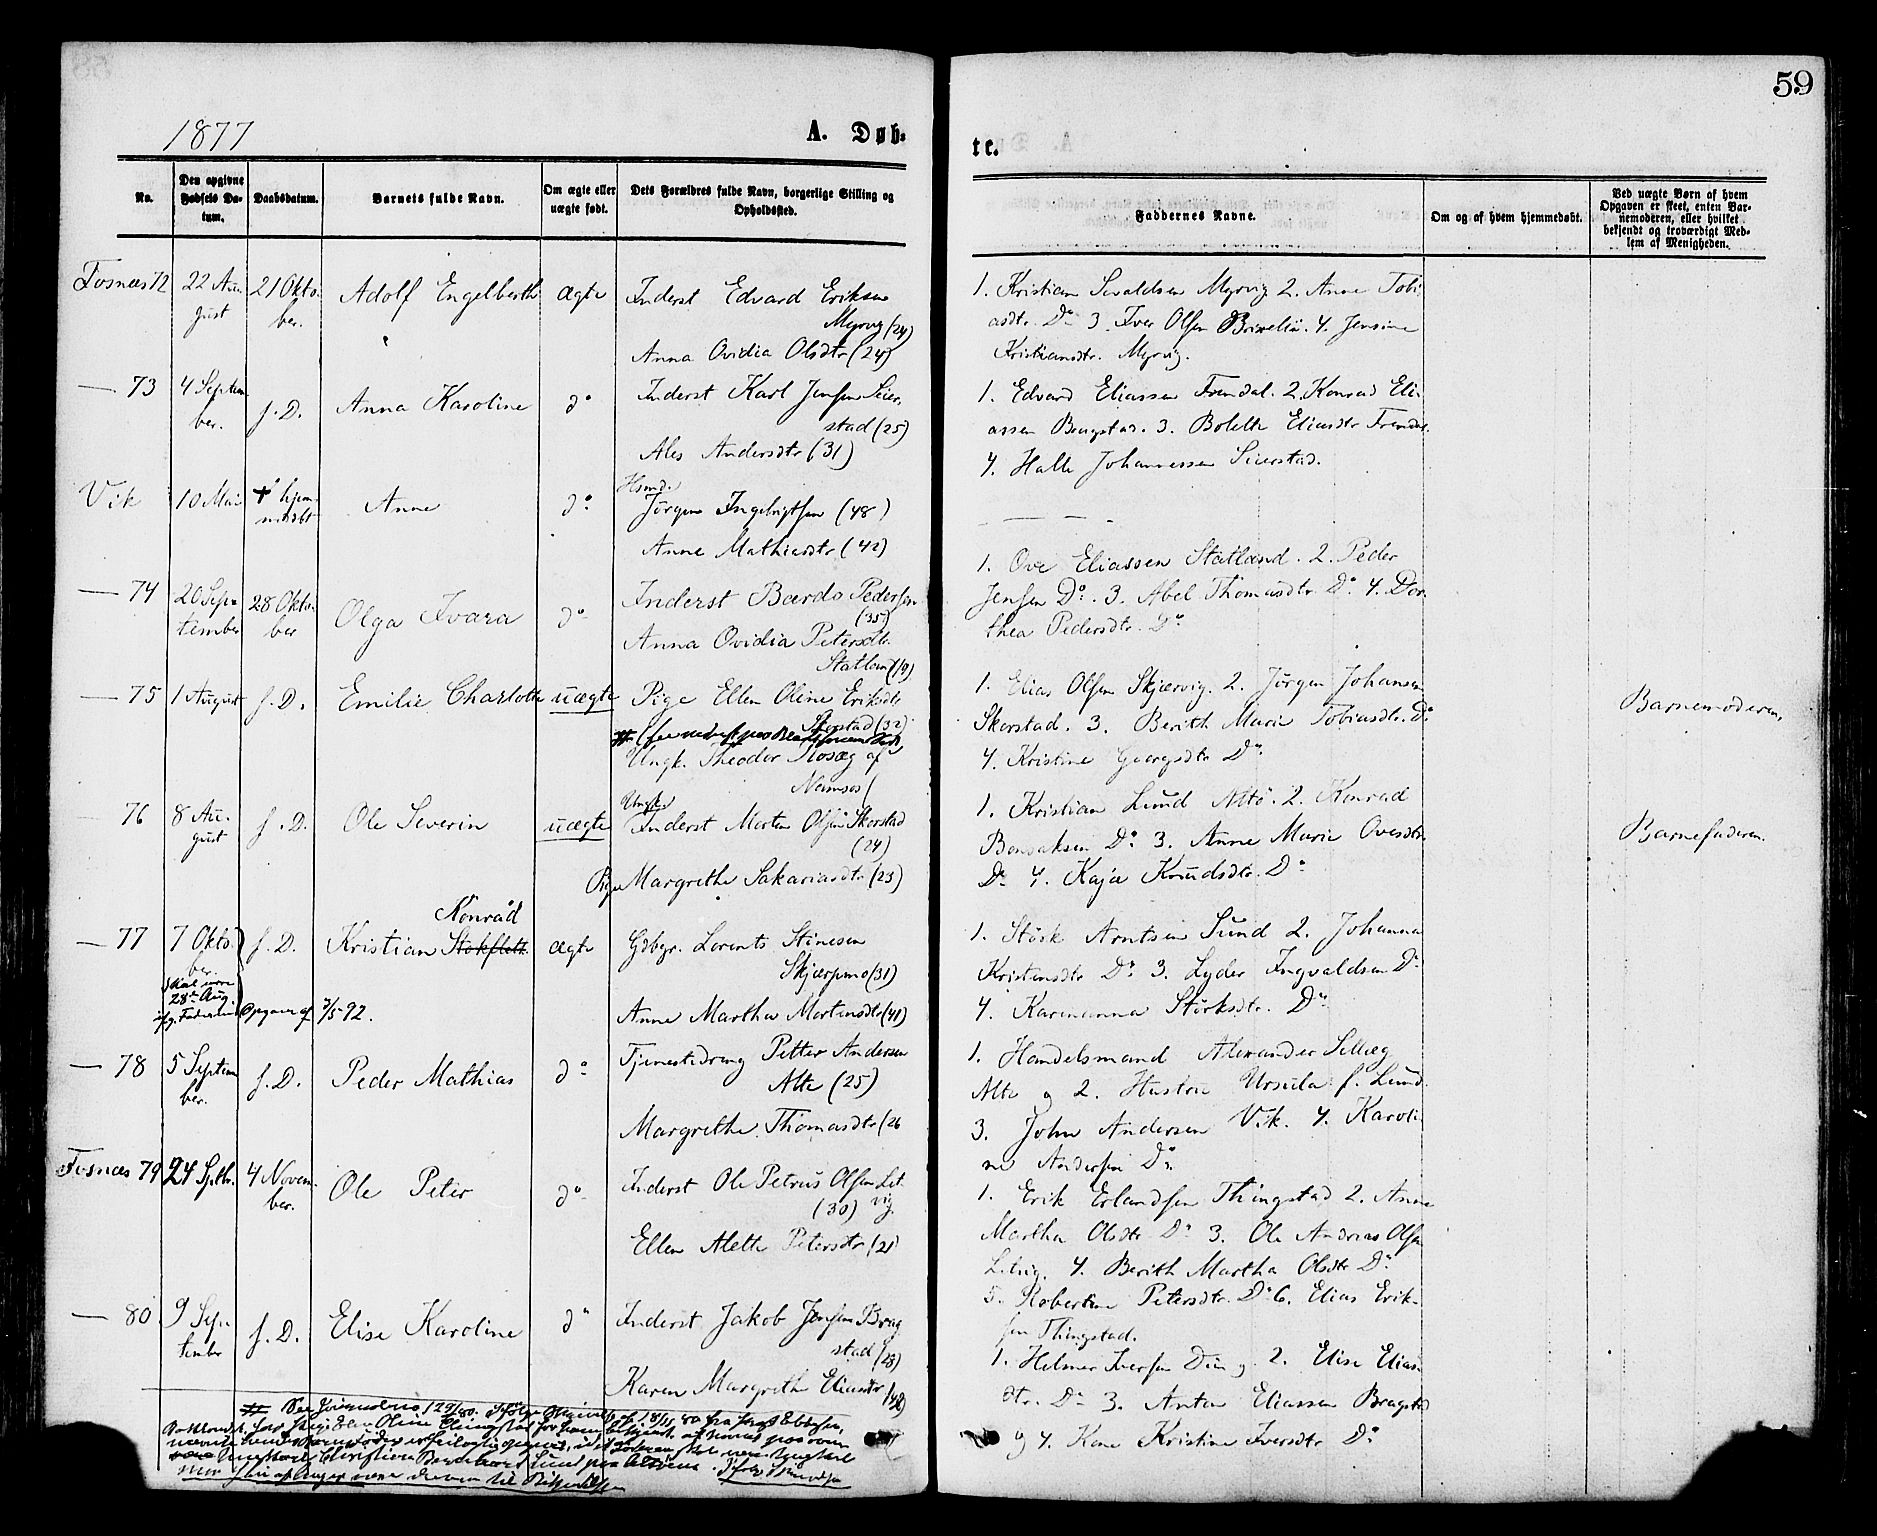 59
1877
A. Døb-
te.
No.
Den opgivne Fødsels Da-
tum.
Daabsdatum.
Barnets fulde Navn.
Om ægte eller
uægte født.
Dets Forældres fulde Navn, borgerlige Stilling og
Opholdssted.
Faddernes Navne.
Om og af hvem hjemmedøbt.
Ved uægte Børn af hvem
Opgaven er skeet, enten Bar-
nemoderen, eller hvilket
bekjendt og troværdigt Med-
lem af Menigheden.
Fosnæs 72
22 Au-
gust
21 Okto-
ber.
Adolf Engelberth
ægte
Inderst Edvard Eriksen
Myrvig (24)
Anna Ovidia Olsdtr (24)
1. Kristian Sivaldsen Myrvig 2. Anne Tobi-
asdtr. Do 3. Iver Olsen 4. Jensine
Kristiansdtr. Myrvig.
— 73
4 Septem-
ber.
s. D.
Anna Karoline
do
Inderst Karl Jensen Seier-
stad (25)
Ales Andersdtr (31)
1. Edvard Eliassen Fremdal. 2. Konrad Eli-
assen Bragstad. 3. Bolette Eliasdtr Fremdal.
4. Halle Johannessen Seierstad.
Vik
10 Mai
+ hjem-
medøbt
Anne
do
Hsmd.
Jørgen Ingebrigtsen (48)
Anne Mathiasdtr (42)
— 74
20 Sep-
tember
28 Okto-
ber
Olga Ivara
do
Inderst Bærdo Pedersen
(35)
Anna Ovidia Petersdtr.
Statland (19)
1. Ove Eliassen Statland. 2. Peder
Jensen Do. 3. Abel Thomasdtr. Do 4. Dor-
thea Pedersdtr. Do
— 75
1 August
s. D.
Emilie Charlotte
uægte
Pige Ellen Oline Eriksdtr
Skorstad (32)
Ungk. Theodor Rosæg af
Namsos
1. Elias Olsen Skjærvig. 2. Jørgen Johansen
Skorstad. 3. Berith Marie Tobiasdtr. Do
4. Kristine Georgsdtr Do
Barnemoderen.
— 76
8 Au-
gust
s. D.
Ole Severin
uægte
Ungk.
Inderst Morten Olsen Skorstad
(24)
Pige Margrethe Sakariasdtr (23)
1. Kristian Lund Altø. 2. Konrad
Bensaksen Do 3. Anne Marie Ovesdtr.
Do 4. Kaja Knudsdtr. Do
Barnefaderen.
— 77
7 Okto-
ber.
skal være
28de Aug.
s. D.
Opgave af 3/5 92.
Konrad
Kristian Stokfleth
ægte
Gbgr. Lorents Stinesen
Skjærpmo (31)
Anne Martha Mortensdtr (41)
1. Störk Arntsen Sund 2. Johanna
Kristensdtr Do 3. Lyder Ingvaldsen Do
4. Karenanna Störksdtr. Do
— 78
5 Septem-
ber.
s. D.
Peder Mathias
do
Tjenestedreng Petter Andersen
Alte (25)
Margrethe Thomasdtr (26
1. Handelsmand Alexander Selliæg
Alte og 2. Hustru Ursula f. Lund.
3. John Andersen Vik. 4. Karoli-
ne Andersen Do.
Fosnæs 79
24 Sptbr.
4 Novem-
ber.
Ole Peter
do
Inderst Ole Petrus Olsen Let-
vig. (30)
Ellen Alette Petersdtr (21)
1. Erik Erlandsen Thingstad 2. Anne
Martha Olsdtr Do 3. Ole Andreas Olsen
Letvig. 4. Berith Martha Olsdtr Do
5. Robertine Petersdtr. Do 6. Elias Erik-
sen Thingstad.
— 80
9 Sep-
tember
s. D.
Elise Karoline
do
Inderst Jakob Jensen Brag-
stad (28)
Karen Margrethe Eliasdtr
1. Helmer Iversen Dun og 2. Elise Elias-
dtr. Do 3. Anton Eliassen Bragstad
og 4. Kone Kristine Iversdtr Do